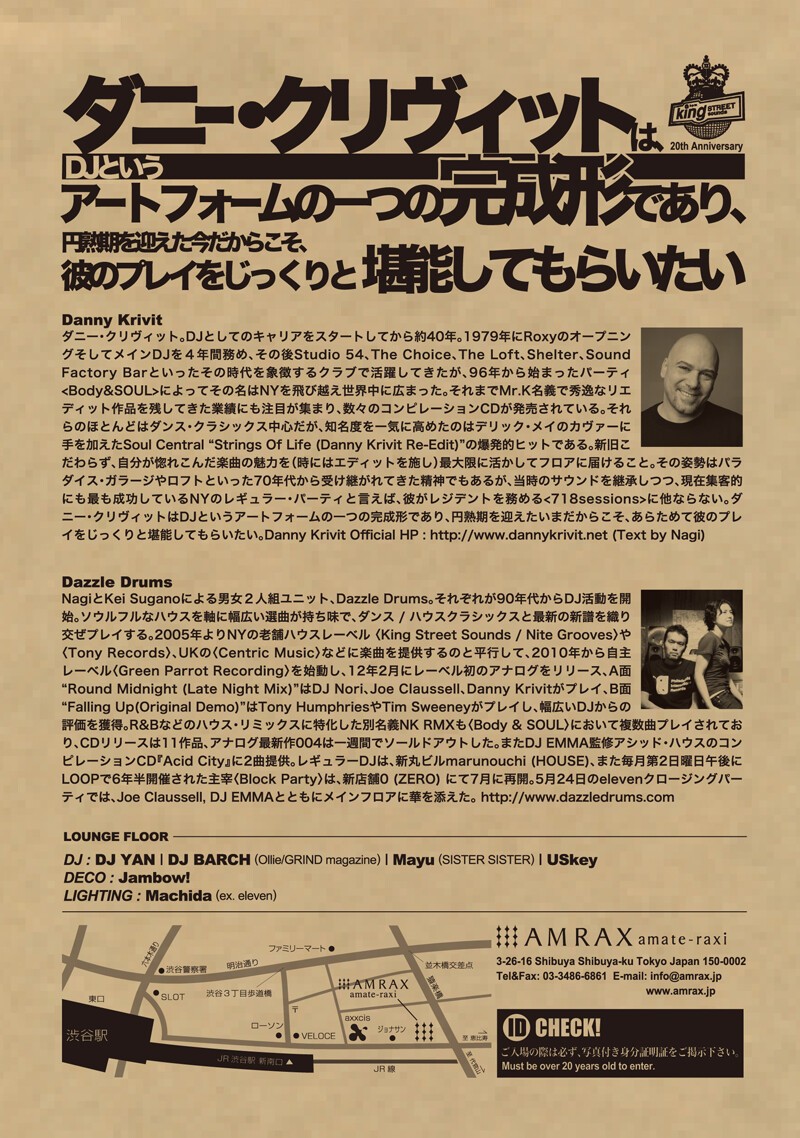 ダニー・クリヴィットは、
king STREET
sounds
20th Anniversary
DJという
アートフォームの一つの完成形であり、
円熟期を迎えた今だからこそ、
彼のプレイをじっくりと堪能してもらいたい
Danny Krivit
ダニー・クリヴィット。DJとしてのキャリアをスタートしてから約40年。1979年にRoxyのオープニン
グそしてメインDJを４年間務め、その後Studio 54、The Choice、The Loft、Shelter、Sound
Factory Barといったその時代を象徴するクラブで活躍してきたが、96年から始まったパーティ
<Body&SOUL>によってその名はNYを飛び越え世界中に広まった。それまでMr.K名義で秀逸なリエ
ディット作品を残してきた業績にも注目が集まり、数々のコンピレーションCDが発売されている。それ
らのほとんどはダンス・クラシックス中心だが、知名度を一気に高めたのはデリック・メイのカヴァーに
手を加えたSoul Central “Strings Of Life (Danny Krivit Re-Edit)”の爆発的ヒットである。新旧こ
だわらず、自分が惚れこんだ楽曲の魅力を（時にはエディットを施し）最大限に活かしてフロアに届けること。その姿勢はパラ
ダイス・ガラージやロフトといった70年代から受け継がれてきた精神でもあるが、当時のサウンドを継承しつつ、現在集客的
にも最も成功しているNYのレギュラー・パーティと言えば、彼がレジデントを務める<718sessions>に他ならない。ダ
ニー・クリヴィットはDJというアートフォームの一つの完成形であり、円熟期を迎えたいまだからこそ、あらためて彼のプレ
イをじっくりと堪能してもらいたい。Danny Krivit Official HP : http://www.dannykrivit.net (Text by Nagi)
Dazzle Drums
NagiとKei Suganoによる男女２人組ユニット、Dazzle Drums。それぞれが90年代からDJ活動を開
始。ソウルフルなハウスを軸に幅広い選曲が持ち味で、ダンス / ハウスクラシックスと最新の新譜を織り
交ぜプレイする。2005年よりNYの老舗ハウスレーベル〈King Street Sounds / Nite Grooves〉や
〈Tony Records〉、UKの〈Centric Music〉などに楽曲を提供するのと平行して、2010年から自主
レーベル〈Green Parrot Recording〉を始動し、12年2月にレーベル初のアナログをリリース、A面
“Round Midnight (Late Night Mix)”はDJ Nori、Joe Claussell、Danny Krivitがプレイ、B面
“Falling Up(Original Demo)”はTony HumphriesやTim Sweeneyがプレイし、幅広いDJからの
評価を獲得。R&Bなどのハウス・リミックスに特化した別名義NK RMXも〈Body & SOUL〉において複数曲プレイされてお
り、CDリリースは11作品、アナログ最新作004は一週間でソールドアウトした。またDJ EMMA監修アシッド・ハウスのコン
ピレーションCD『Acid City』に2曲提供。レギュラーDJは、新丸ビルmarunouchi (HOUSE)、また毎月第2日曜日午後に
LOOPで6年半開催された主宰〈Block Party〉は、新店舗0 (ZERO) にて7月に再開。5月24日のelevenクロージングパー
ティでは、Joe Claussell, DJ EMMAとともにメインフロアに華を添えた。 http://www.dazzledrums.com
LOUNGE FLOOR
DJ : DJ YAN | DJ BARCH (Ollie/GRIND magazine) | Mayu (SISTER SISTER) | USkey
DECO : Jambow!
LIGHTING : Machida (ex. eleven)
AMRAX amate-raxi
3-26-16 Shibuya Shibuya-ku Tokyo Japan 150-0002
Tel&Fax: 03-3486-6861 E-mail: info@amrax.jp
www.amrax.jp
ID CHECK!
ご入場の際は必ず、写真付き身分証明証をご掲示下さい。
Must be over 20 years old to enter.
六本木通り
ファミリーマート
渋谷警察署
明治通り
並木橋交差点
東口
SLOT
渋谷3丁目歩道橋
AMRAX
amate-raxi
〒
渋谷駅
ローソン
VELOCE
axxcis
ジョナサン
至 恵比寿
JR 渋谷駅 新南口
JR 線
至 代官山